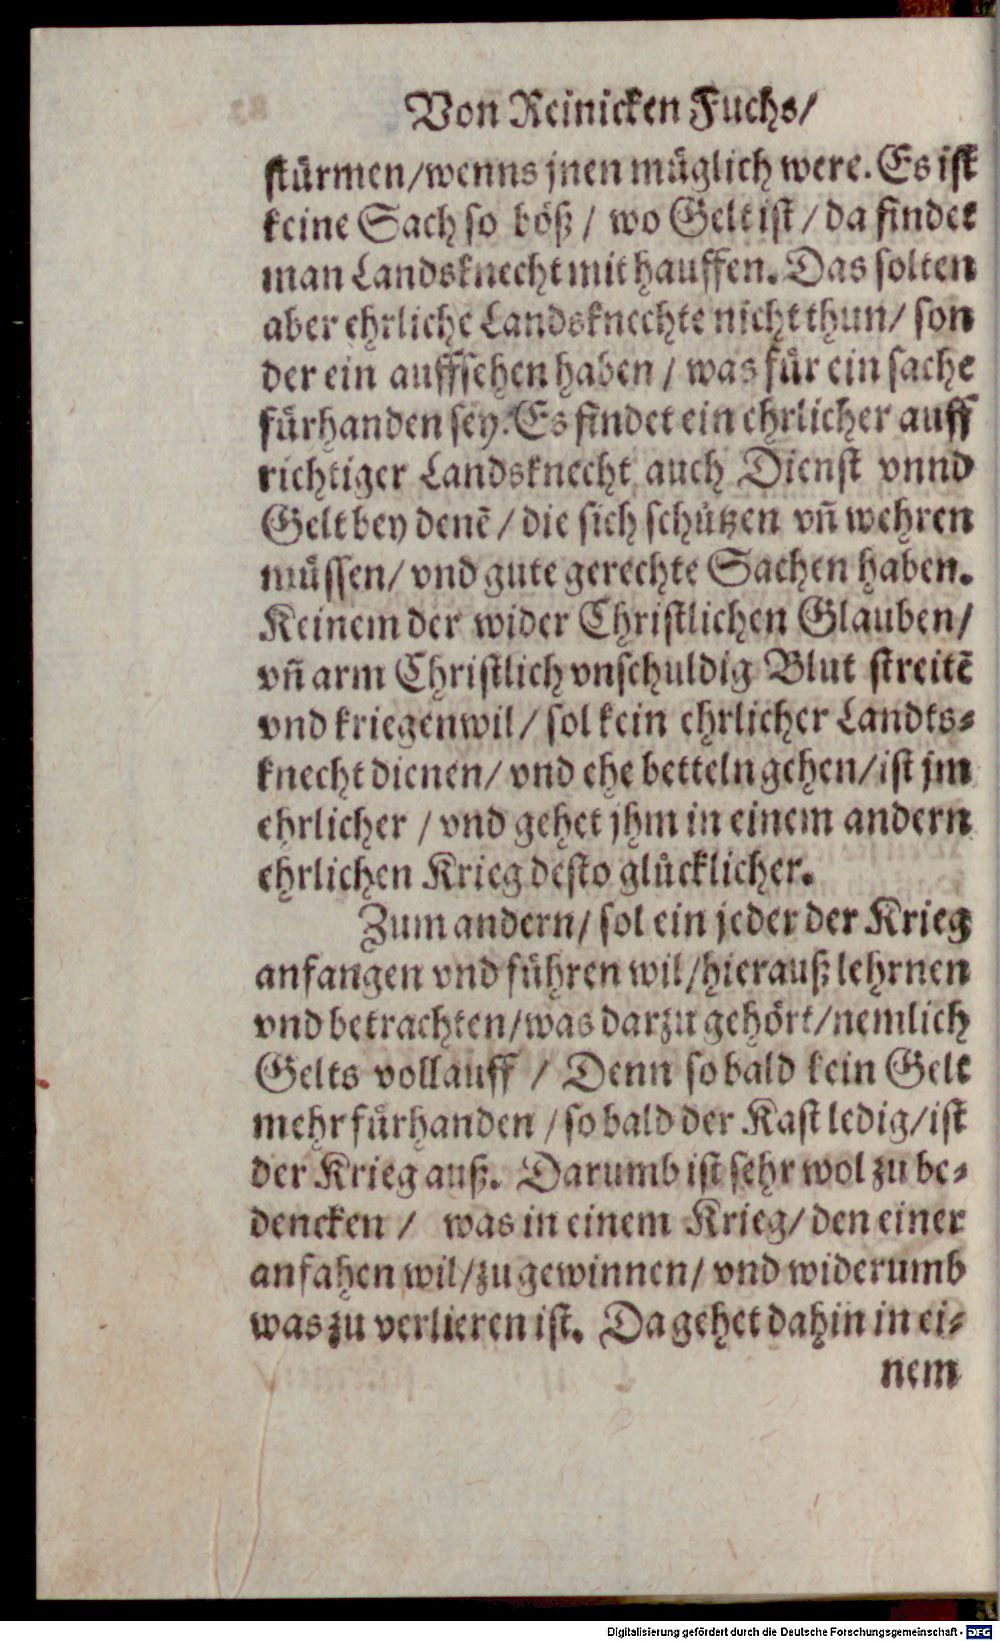 Von Reinicken Fuchs/
stürmen/wenns jnen müglich were. Es ist
keine Sach so böß / wo Gelt ist / da findet
man Landsknecht mit hauffen. Das solten
aber ehrliche Landsknechte nicht thun/ son
der ein auffsehen haben / was für ein sache
fürhanden sey. Es findet ein ehrlicher auff
richtiger Landsknecht auch Dienst vnnd
Gelt bey denē / die sich schützen vñ wehren
müssen/ vnd gute gerechte Sachen haben.
Keinem der wider Christlichen Glauben/
vñ arm Christlich vnschuldig Blut streitē
vnd kriegen wil/ sol kein ehrlicher Landts-
knecht dienen/ vnd ehe betteln gehen/ist jm
ehrlicher / vnd gehet jhm in einem andern
ehrlichen Krieg desto glücklicher.
Zum andern/ sol ein jeder der Krieg
anfangen vnd führen wil/hierauß lehrnen
vnd betrachten/was darzu gehört/nemlich
Gelts vollauff / Denn so bald kein Gelt
mehr fürhanden / so bald der Kast ledig/ist
der Krieg auß. Darumb ist sehr wol zu be-
dencken / was in einem Krieg/ den einer
anfahen wil/zu gewinnen/ vnd widerumb
was zu verlieren ist. Da gehet dahin in ei-
nem
Digitalisierung gefördert durch die Deutsche Forschungsgemeinschaft - DFG